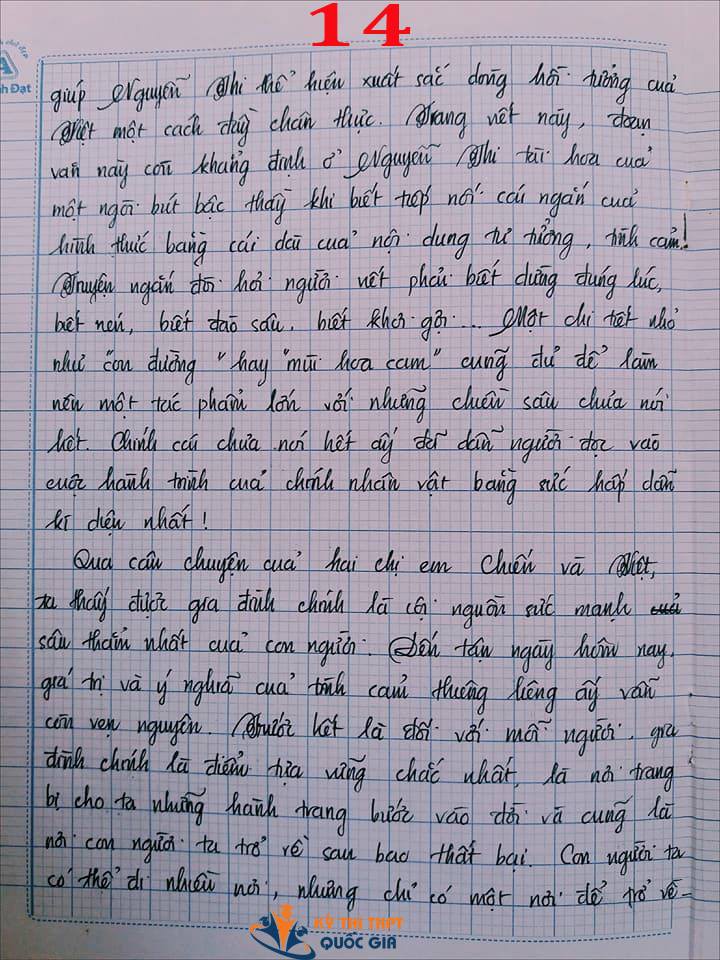 14
giúp Nguyễn Thi thể hiện xuất sắc dòng hồi tưởng của
Việt một cách đầy chân thực. Trang viết này, đoạn
văn này còn khẳng định ở Nguyễn Thi tài hoa của
một ngòi bút bậc thầy khi biết tiếp nối cái ngắn của
hình thức bằng cái dài của nội dung tư tưởng, tình cảm!
Truyện ngắn đòi hỏi người viết phải biết dừng đúng lúc,
biết nén, biết đào sâu, biết khơi gợi... Một chi tiết nhỏ
như "con đường" hay "mùi hoa cam" cũng đủ để làm
nên một tác phẩm lớn với những chiều sâu chưa nói
hết. Chính cái chưa nói hết ấy để dẫn người đọc vào
cuộc hành trình của chính nhân vật bằng sức hấp dẫn
kì diệu nhất!
Qua câu chuyện của hai chị em Chiến và Việt,
ta thấy được gia đình chính là cội nguồn sức mạnh
sâu thẳm nhất của con người. Đến tận ngày hôm nay,
giá trị và ý nghĩa của tình cảm thiêng liêng ấy vẫn
còn vẹn nguyên. Trước hết là đối với mỗi người, gia
đình chính là điểm tựa vững chắc nhất, là nơi trang
bị cho ta những hành trang bước vào đời và cũng là
nơi con người ta trở về sau bao thất bại. Con người ta
có thể đi nhiều nơi, nhưng chỉ có một nơi để trở về-
KỲ THI THPT
QUỐC GIA